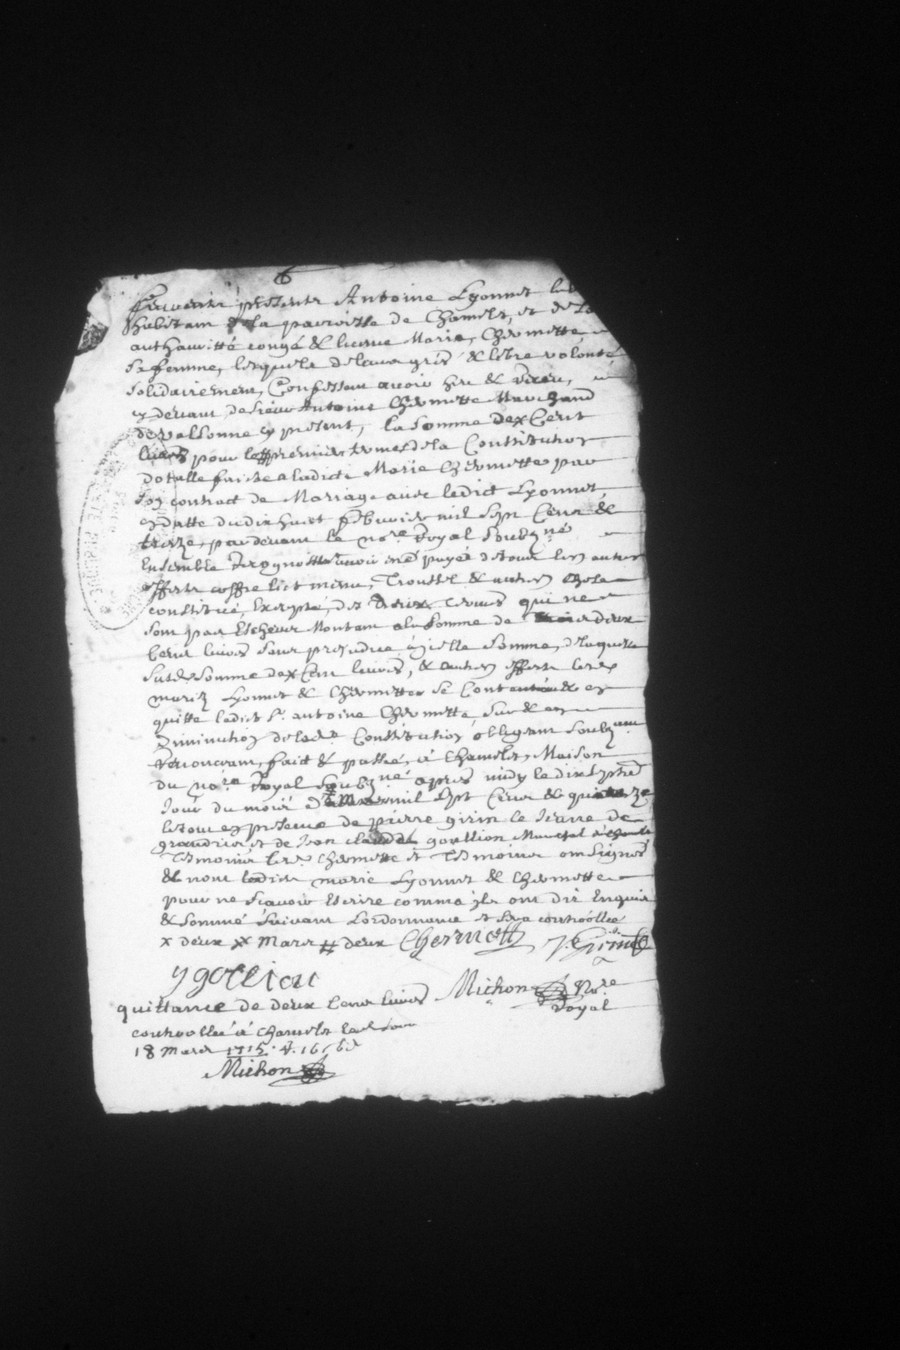 Furent presents Antoine Lyonnet
habitant de la parroisse de Chamelet, et de
authauritté congé & licence Marie Chermette
sa femme, lesquels de leurs grés & libre volonté
solidairement, Confessent avoir heu & receu,
cy devant de sieur Antoine Chermette Marchand
de Valsonne cy present, la somme deux Cent
livres pour les premiers termes de la Constitution
dotalle faitte a ladicte Marie Chermette par
son contract de Mariage avec ledict Lyonnet
en datte du dix huict febvrier mil sept Cent &
treize, pardevant le no.re Royal soubz.né
Ensemble recognoittre avoir esté payés de tous les autres
effects coffre lict menu, Troussel & autres choses
constitué, Excepté, des deux termes qui ne
sont pas Escheus Montant a la somme de deux
Cent livres sans prejudice d'icelle somme, de laquelle
susd. somme deux Cent livres, & autres effects lesd.
mariés Lyonnet & Chermette se Contentent et
quitte ledict s.r antoine Chermette, sur & en
Diminution de lad.te Constitution obligeant soubz
renonceant, fait & passé, à Chamelet, Maison
du no.re Royal soubz.né apres midy le dixseptie
Jour du mois de Mars mil sept Cent & quinze
le tout en presence de pierre girin le Jeune de
grandris et de Jean claude goullion Marechal à chamelet
Tesmoins led. Chermette et Tesmoins ont signés
& nont ledict marie Lyonnet & Chermette
pour ne scavoir Escrire comme ils ont dit Enquis
& sommé suivant Lordonnance et sera controollee
x deux xx Mars # deux Chermette J. Girin
J goullion
Michon No.re
Royal
quittance de deux Cent livres
controollé à Chamelet
18 Mars 1715
Michon